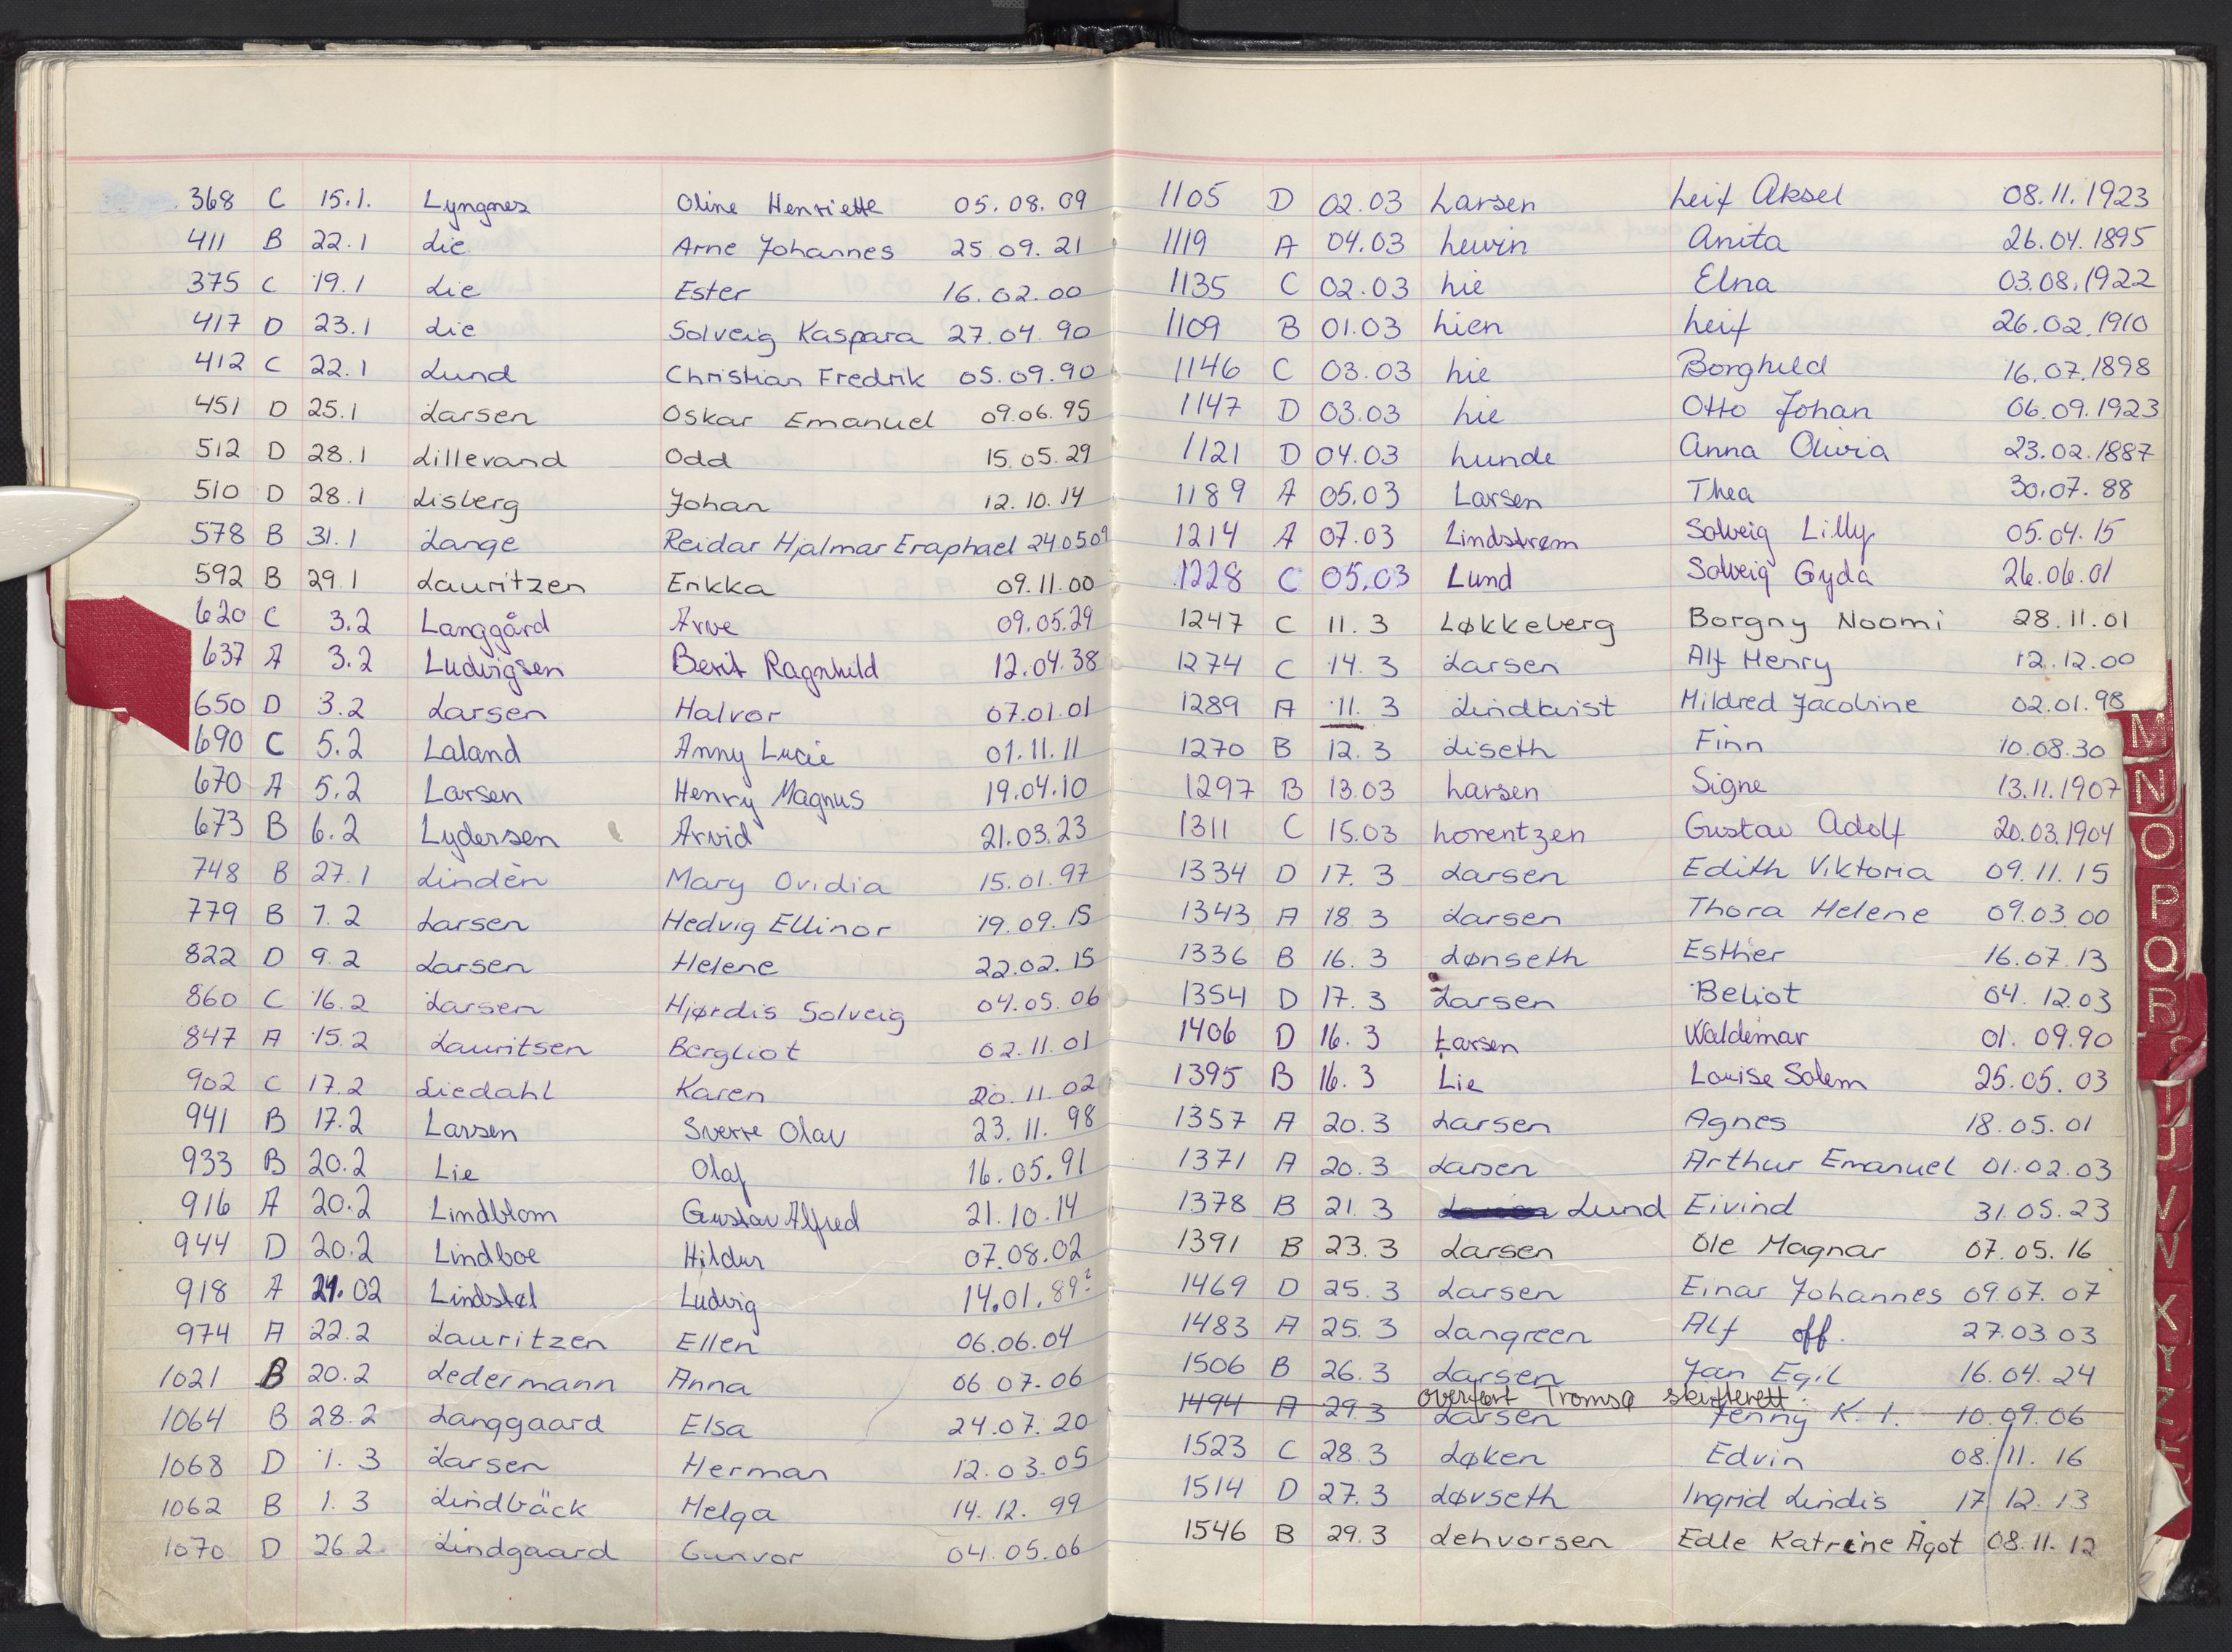 368 C 15.1. Lyngnes Oline Henriette 05.08.09
411 B 22.1 Lie Arne Johannes 25 09. 21
375 C 19.1 Lie Ester 16.02.00
417 D 23.1 Lie Solveig Kaspara 27.04.90
412 C 22.1 Lund Christian Fredrik 05.09.90
451 D 25.1 Larsen Oskar Emanuel 09.06.95
512 D 28.1 Lillevand Odd 15.05.29
510 D 28.1 Lisberg Johan 12.10.14
578 B 31.1 Lange Reidar Hjalmar Eraphael 24.05.09
592 B 29.1 Lauritzen Erikka 09.11.00
620 C 3.2 Langgård Arve 09.05.29
637 A 3.2 Ludvigsen Berit Ragnhild 12.04.38
650 D 3.2 Larsen Halvor 07.01.01
690 C 5.2 Laland Anny Lucie 01.11.11
670 A 5.2 Larsen Henry Magnus 19.04.10
673 B 6.2 Lydersen Arvid 21.03.23
748 B 27.1 Lindèn Mary Ovidia 15.01.97
779 B 7.2 Larsen Hedvig Ellinor 19.09.15
822 D 9.2 Larsen Helene 22.02.15
860 C 16.2 Larsen Hjørdis Solveig 04.05.06
847 A 15.2 Lauritsen Bergliot 02.11.01
902 C 17.2 Liedahl Karen 20.11.02
941 B 17.2 Larsen Sverre Olav 23.11.98
933 B 20.2 Lie Olaf 16.05.91
916 A 20.2 Lindblom Gustav Alfred 21.10.14
944 D 20.2 Lindboe Hildur 07.08.02
918 A 21.02 Lindstøl Ludvig 14.01.89?
974 A 22.2 Lauritzen Ellen 06.06.04
1021 B 20.2 Ledermann Anna 06 07.06
1064 B 28.2 Langgaard Elsa 24.07.20
1068 D 1.3 Larsen Herman 12.03.05
1062 B 1.3 Lindbäck Helga 14.12.99
1070 D 26.2 Lindgaard Gunvor 04.05.06
1105 D 02.03 Larsen Leif Aksel 08.11.1923
1119 A 04.03 Lewin Anita 26.04.1895
1135 C 02.03 Lie Elna 03.08.1922
1109 B 01.03 Lien Leif 26.02.1910
1146 C 03.03 Lie Borghild 16.07.1898
1147 D 03.03 Lie Otto Johan 06.09.1923
1121 D 04.03 Lunde Anna Olivia 23.02.1887
1189 A 05.03 Larsen Thea 30.07.88
1214 A 07.03 Lindstrøm Solveig Lilly 05.04.15
1228 C 05.03 Lund Solveig Gyda 26.06.01
1247 C 11.3 Løkkeberg Borgny Noomi 28.11.01
1274 C 14.3 Larsen Alf Henry 12.12.00
1289 A 11.3 Lindkvist Mildred Jacobine 02.01.98
1270 B 12.3 Liseth Finn 10.08.30
1297 B 13.03 Larsen Signe 13.11.1907
1311 C 15.03 Lorentzen Gustav Adolf 20.03.1904
1334 D 17.3 Larsen Edith Viktoria 09.11.15
1343 A 18.3 Larsen Thora Helene 09.03.00
1336 B 16.3 Lønseth Esther 16.07.13
1354 D 17.3 Larsen Beliot 04.12.03
1406 D 16.3 Larsen Waldemar 01.09.90
1395 B 16.3 Lie Louise Solem 25.05.03
1357 A 20.3 Larsen Agnes 18.05.01
1371 A 20.3 Larsen Arthur Emanuel 01.02.03
1378 B 21.3 Lund Eivind 31.05.23
1391 B 23.3 Larsen Ole Magnar 07.05.16
1469 D 25.3 Larsen Einar Johannes 09.07.07
1483 A 25.3 Langreen Alf off. 27.03.03
1506 B 26.3 Larsen Jan Egil 16.04.24
overført Tromsø skifterett
1494 A 29.3 Larsen Jenny K. I. 10.09.06
1523 C 28.3 Løken Edvin 08.11.16
1514 D 27.3 Løvseth Ingrid Lindis 17 12.13
1546 B 29.3 Lehvorsen Edle Katrine Ågot 08.11.12
M
N
O
P
Q
R
U
V
X
Y